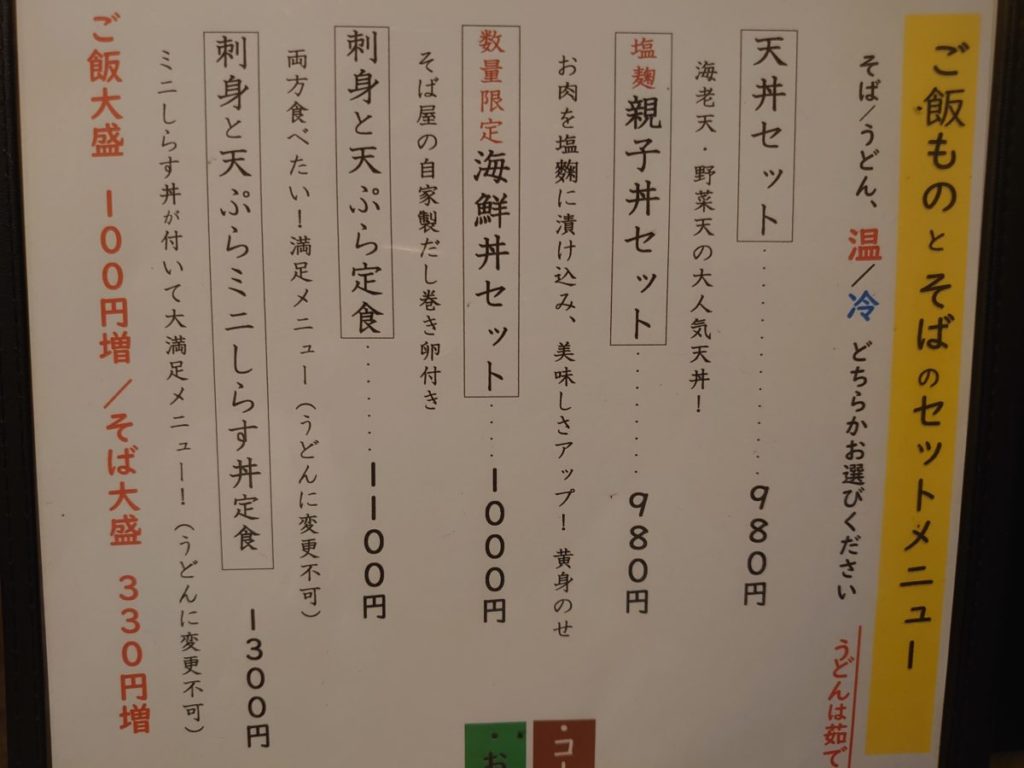 ご飯ものとそばのセットメニュー
そば/うどん、温/冷 どちらかお選びください
うどんは茹で
天丼セット・・・・・・・・・・980円
海老天・野菜天の大人気天丼!
塩麹 親子丼セット・・・・・・980円
お肉を塩麴に漬け込み、美味しさアップ! 黄身のせ
数量限定 海鮮丼セット・・・・1000円
そば屋の自家製だし巻き卵付き
刺身と天ぷら定食・・・・・・1100円
両方食べたい!満足メニュー(うどんに変更不可)
刺身と天ぷらミニしらす丼定食 1300円
ミニしらす丼が付いて大満足メニュー!(うどんに変更不可)
ご飯大盛 100円増/そば大盛 330円増
・コー
お